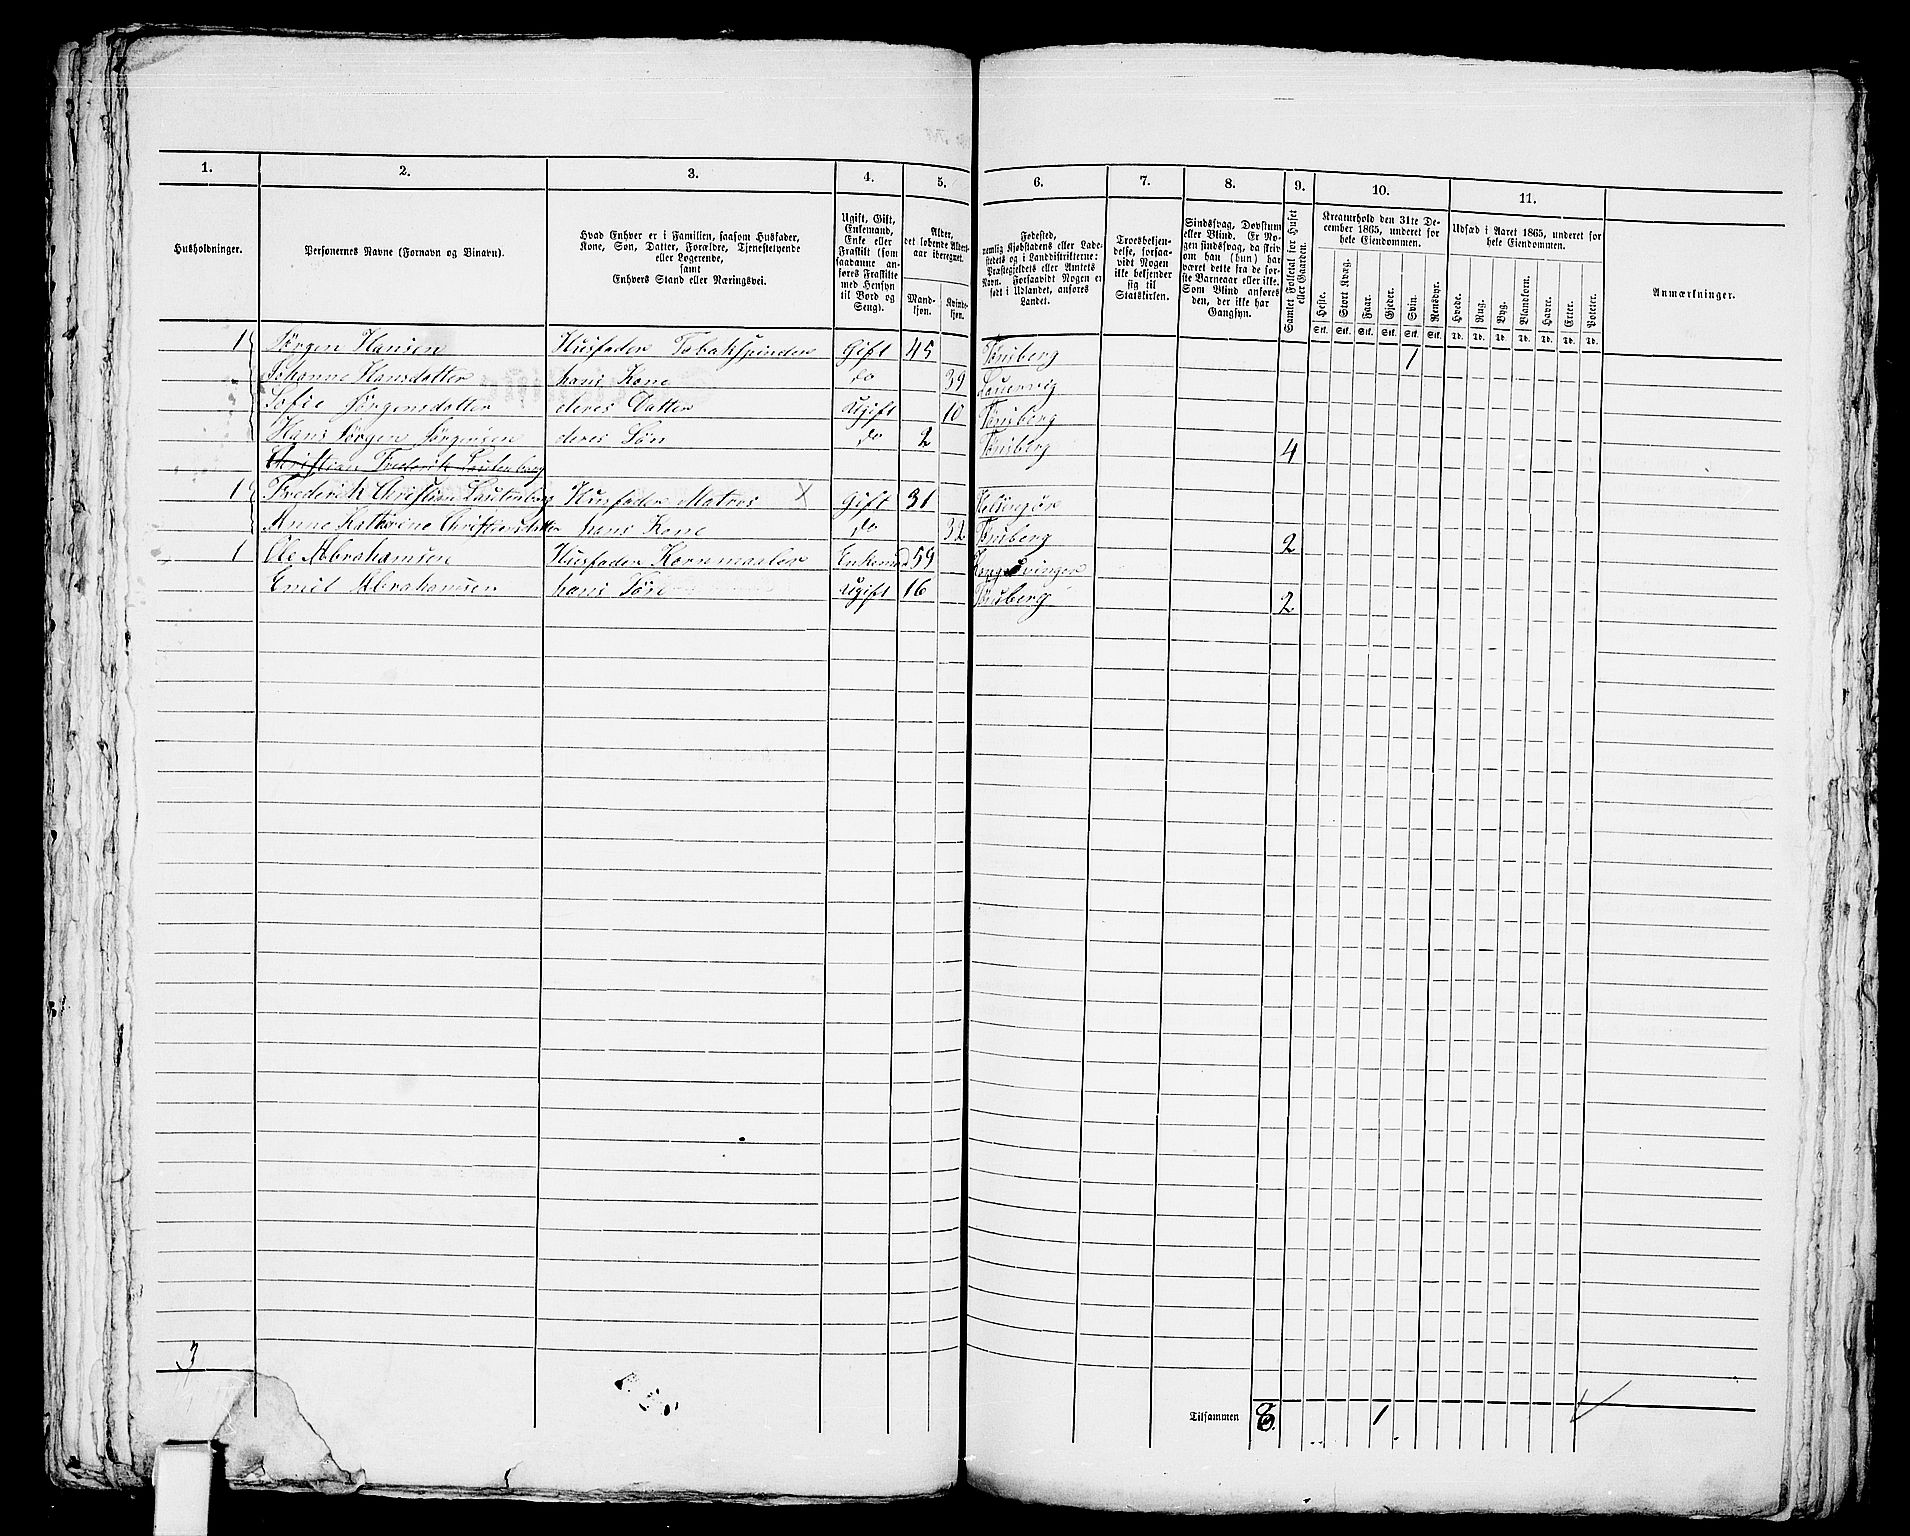 1. 2. 3. 4. 5. 6. 7. 8. 9. 10. 11.
Husholdninger.
Personernes Navne (Fornavn og Binavn).
Hvad Enhver er i Familien, saasom Husfader,
Kone, Søn, Datter, Forældre, Tjenestetyende
eller Logerende,
samt
Enhvers Stand eller Næringsvei.
Ugift, Gift,
Enkemand,
Enke eller
Fraskilt (som
saadanne an-
føres Fraskilte
med Hensyn
til Bord og
Seng).
Alder,
det løbende Alders-
aar iberegnet.
Mand-
kjøn.
Kvinde-
kjøn.
Fødested,
nemlig Kjøbstadens eller Lade-
stedets og i Landdistrikterne:
Præstegjeldets eller Amtets
Navn. Forsaavidt Nogen er
født i Udlandet, anføres
Landet.
Troesbekjen-
delse, forsaa-
vidt Nogen
ikke bekjender
sig til
Statskirken.
Sindssvag, Døvstum
eller Blind. Er No-
gen sindssvag, da skriv
om han (hun) har
været dette fra de før-
ste Barneaar eller ikke.
Som Blind anføres
den, der ikke har
Gangsyn.
Samlet Folketal for Huset
eller Gaarden.
Kreaturhold den 31te De-
cember 1865, underet for
hele Eiendommen.
Heste. Stort Kvæg. Faar. Gjeder. Svin. Rensdyr.
Stk. Stk. Stk. Stk. Stk. Stk.
Udsæd i Aaret 1865, underet for
hele Eiendommen.
Hvede. Rug. Byg. Blandkorn. Havre. Erter. Poteter.
Td. Td. Td. Td. Td. Td. Td.
Anmærkninger.
1 Jørgen Hansen Husfader Tobakspinder Gift 45 Tønsberg 1
Johanne Hansdatter hans Kone do 39 Laurvig
Sofie Jørgensdatter deres Datter Ugift 10 Tønsberg
Hans Jørgen Jørgensen deres Søn do 2 Tønsberg 4
Christian Frederik Lautenberg
1 Frederik Christian Lautenberg Husfader Matros X Gift 31 Helsingør
Anne Kathrine Christiansdatter hans Kone do 32 Tønsberg 2
1 Ole Abrahamsen Husfader Kornmaaler Enkemand 59 Kongsvinger
Emil Abrahamsen hans Søn Ugift 16 Tønsberg 2
3
Tilsammen 8 1